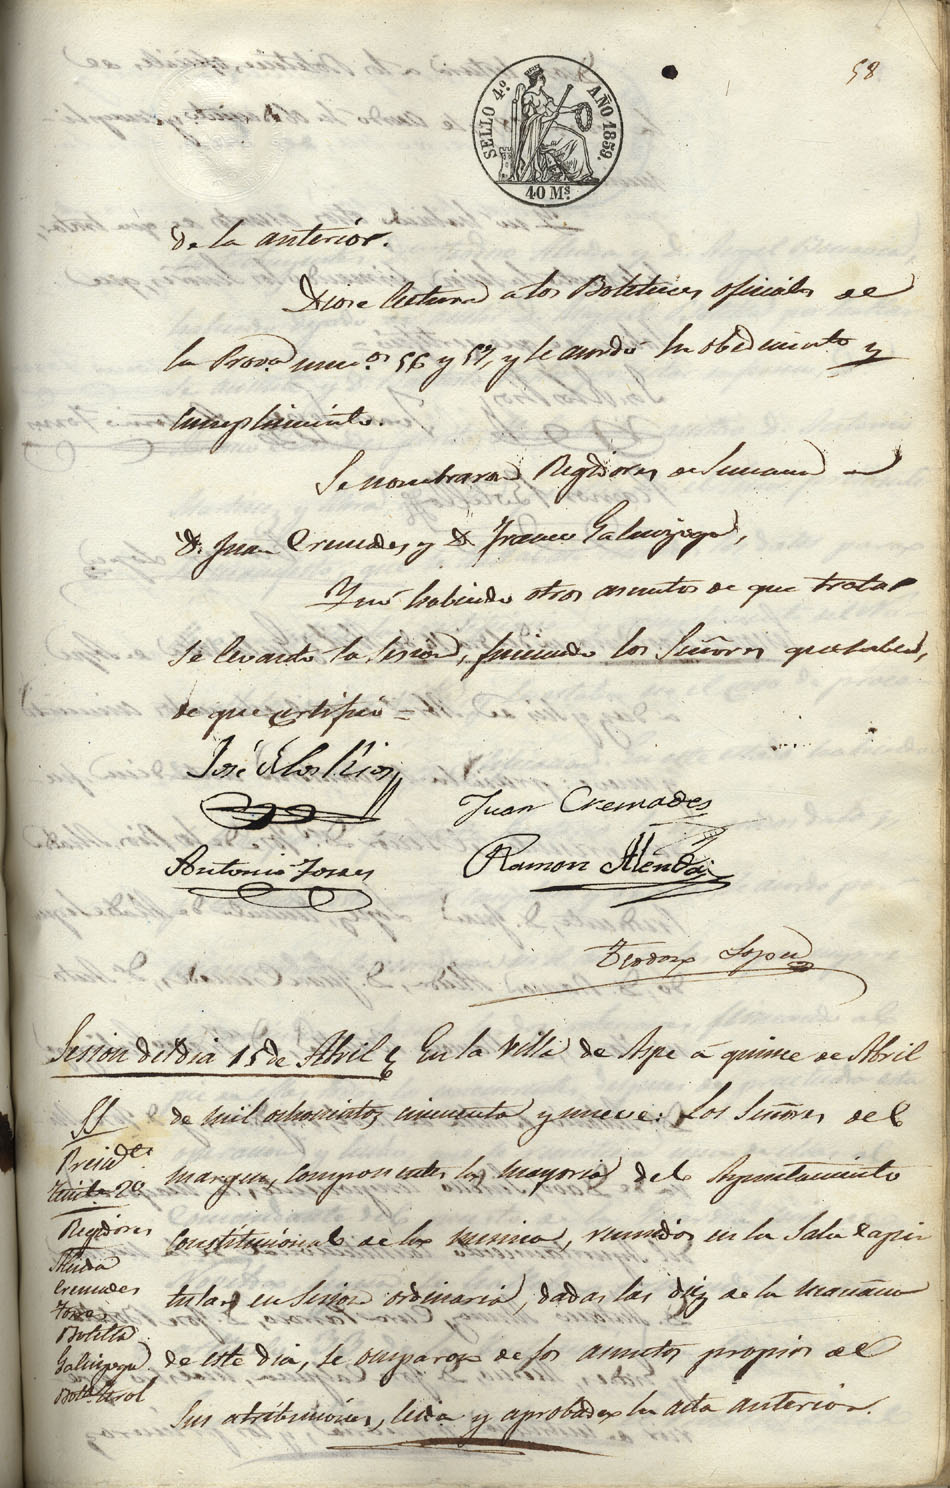 58
SELLO 4º AÑO 1859.
40 Ms.
de la anterior.
Diose lectura a los Boletines oficiales de
la Prova. numos. 56 y 57, y se acordó su obedecimiento y
cumplimiento.
Se nombraron Regidores de Semana a
D. Juan Cremades, y D. Franco Galinzoga,
Y no habiendo otros asuntos de que tratar
se levantó la sesion, firmando los Señores que saben,
de que certifico =
José de los Rios
Juan Cremades
Antonio Torres
Ramon Alenda
Teodoro Lopez
Sesion del dia 15 de Abril
En la Villa de Aspe á quince de Abril
de mil ochocientos cincuenta y nueve: Los Señores del
margen, componentes la mayoria del Ayuntamiento
Constitucional de la misma, reunidos en la Sala Capi
tular en Sesion ordinaria, dadas las diez de la mañana
de este dia, se ocuparon de los asuntos propios de
sus atribuciones, leida y aprobada la acta anterior.
SS
Presidte.
Tente. 2º
Regidores
Alenda
Cremades
Torres
Botella
Galinzoga